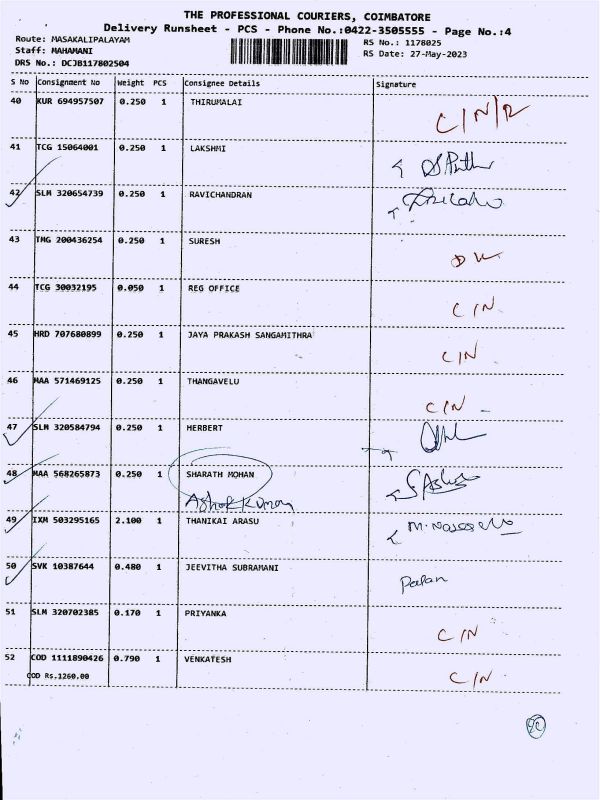 THE PROFESSIONAL COURIERS, COIMBATORE
Delivery Runsheet - PCS - Phone No.:0422-3505555 - Page No.:4
Route: MASAKALIPALAYAM RS No.: 1178025
Staff: MAHAMANI RS Date: 27-May-2023
DRS No.: DCJB117802504
S No Consignment No Weight PCS Consignee Details Signature
40 KUR 694957507 0.250 1 THIRUMALAI C/N/R
41 TCG 15064001 0.250 1 LAKSHMI
42 SLM 320654739 0.250 1 RAVICHANDRAN
43 TMG 200436254 0.250 1 SURESH
44 TCG 30032195 0.050 1 REG OFFICE C/N
45 HRD 707680899 0.250 1 JAYA PRAKASH SANGAMITHRA C/N
46 MAA 571469125 0.250 1 THANGAVELU C/N
47 SLM 320584794 0.250 1 HERBERT
48 MAA 568265873 0.250 1 SHARATH MOHAN
Ashok Kumar
49 IXM 503295165 2.100 1 THANIKAI ARASU
50 SVK 10387644 0.480 1 JEEVITHA SUBRAMANI
51 SLM 320702385 0.170 1 PRIYANKA C/N
52 COD 1111890426 0.790 1 VENKATESH C/N
COD Rs.1260.00